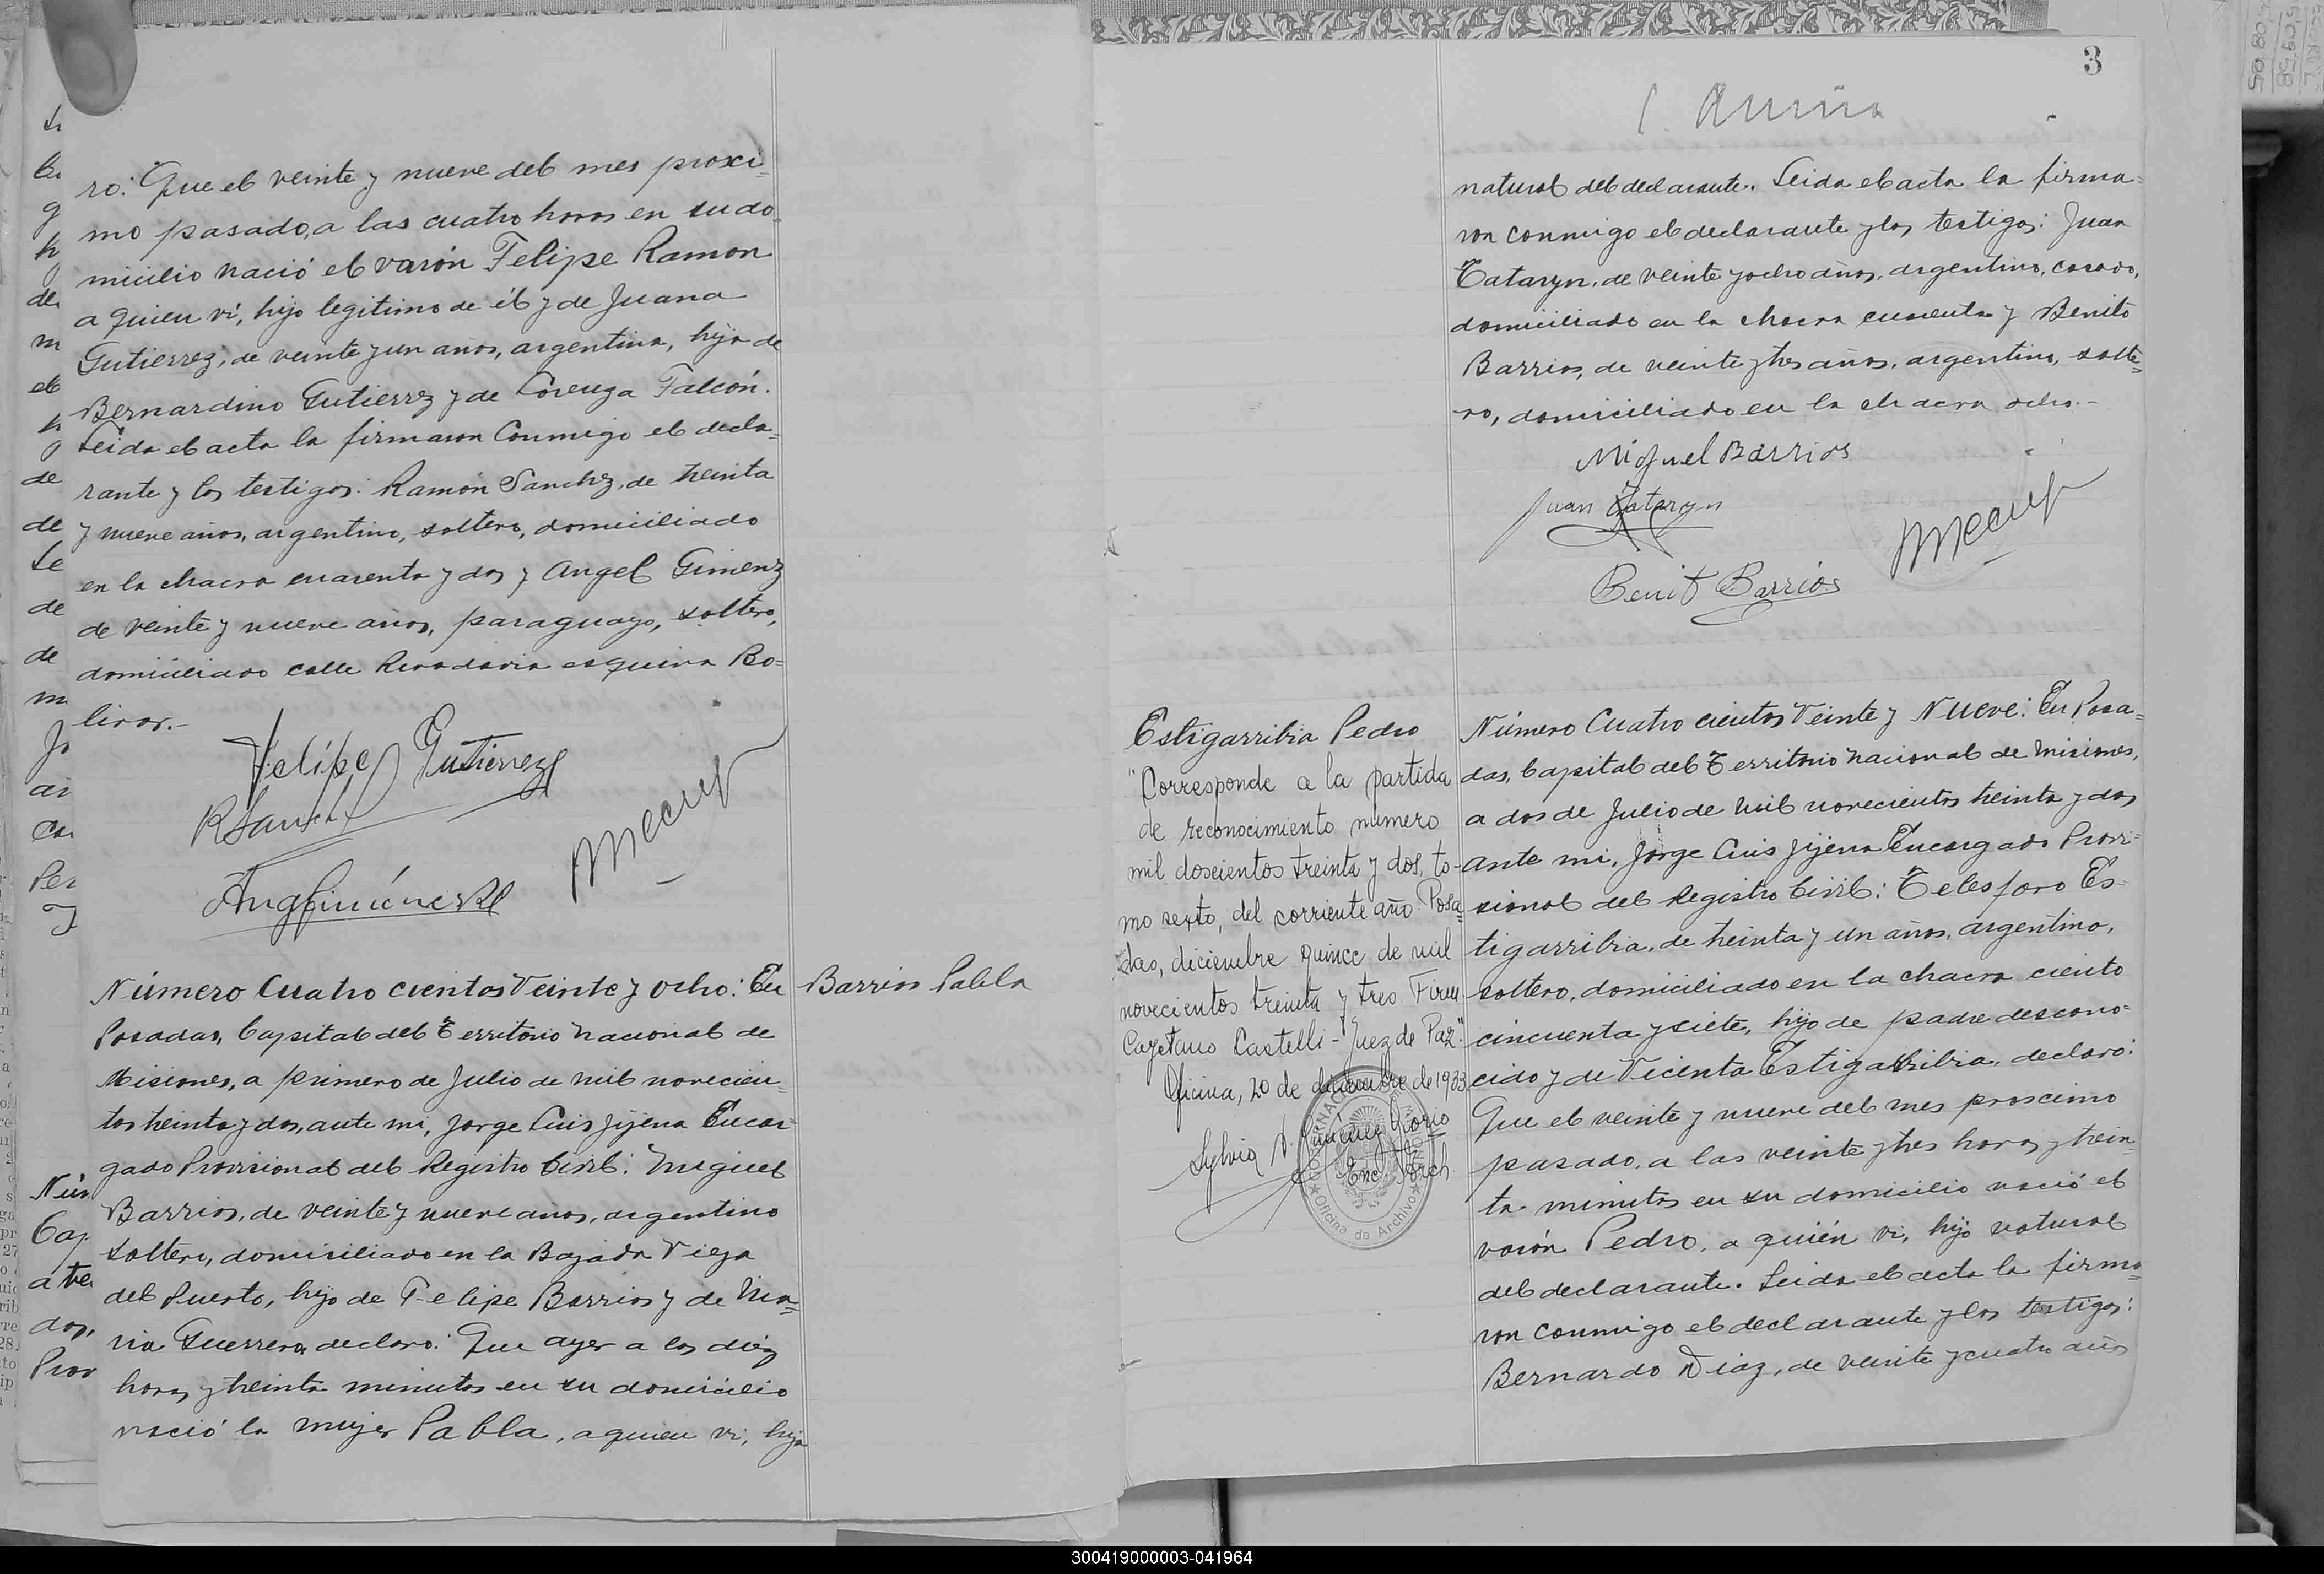 ro: Que el veinte y nueve del mes proxi=
mo pasado, a las cuatro horas en su do=
micilio nació el varón Felipe Ramon
a quien vi, hijo legitimo de él y de Juana
Gutierrez, de veinte y un años, argentina, hija de
Bernardino Gutierrez y de Lorenza Falcón.
Leida el acta la firmaron conmigo el decla=
rante y los testigos: Ramón Sanchez, de treinta
y nueve años, argentino, soltero, domiciliado
en la chacra cuarenta y dos y Angel Gimenz
de veinte y nueve años, paraguayo, soltero,
domiciliado calle Rivadavia esquina Bo=
livar.-
Felipe Gutierrez
RSanch
Número Cuatro cientos Veinte y Ocho: En
Posadas, Capital del Territorio Nacional de
Misiones, a primero de Julio de mil novecien=
tos treinta y dos, ante mi, Jorge Luis Jijena Encar=
gado Provisional del Registro Civil: Miguel
Barrios, de veinte y nueve años, argentino
soltero, domiciliado en la Bajada Vieja
del Puerto, hijo de Felipe Barrios y de Ma=
ria Guerrero, declaro: Que ayer a las diez
horas y treinta minutos en su domicilio
nació la mujer Pabla, a quien vi, hija
Barrios Pabla
3
natural del declarante. Leida el acta la firma=
ron conmigo el declarante y los testigos: Juan
Tataryn, de veinte y ocho años, argentino, casado,
domiciliado en la chacra cuarenta y Benito
Barrios, de veinte y tres años, argentino, solte=
ro, domiciliado en la chacra ocho.-
Miguel Barrios
Juan Tataryn
Benit Barrios
Estigarribia Pedro
"Corresponde a la partida
de reconocimiento numero
mil doscientos treinta y dos, to-
mo sexto, del corriente año. Posa=
das, diciembre quince de mil
novecientos treinta y tres Firm
Cayetano Castelli - Juez de Paz."
Oficina, 20 de diciembre de 1933
Sylvia
Enc. Arch
Oficina de Archivo
Número Cuatro cientos Veinte y Nueve: En Posa=
das, Capital del Territorio Nacional de Misiones,
a dos de Julio de mil novecientos treinta y dos
ante mi, Jorge Luis Jijena Encargado Provi=
sional del Registro Civil: Telesforo Es=
tigarribia, de treinta y un años, argentino,
soltero, domiciliado en la chacra ciento
cincuenta y siete, hijo de padre descono=
cido y de Vicenta Estigarribia, declaró:
Que el veinte y nueve del mes proscimo
pasado, a las veinte y tres horas y trein=
ta minutos en su domicilio nació el
varón Pedro, a quién vi, hijo natural
del declarante. Leida el acta la firma=
ron conmigo el declarante y los testigos:
Bernardo Diaz, de veinte y cuatro años
300419000003-041964